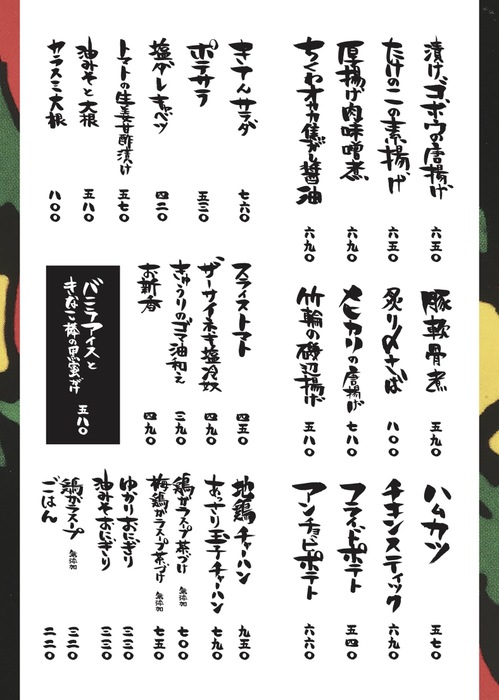 漬けゴボウの唐揚げ 六五〇
たけのこの素揚げ 六五〇
厚揚げ肉味噌煮 六九〇
ちくわオカカ焦がし醤油 六九〇
豚軟骨煮 五九〇
炙り〆さば 八〇〇
メヒカリの唐揚げ 七八〇
竹輪の磯辺揚げ 五八〇
ハムカツ 五七〇
チキンスティック 六九〇
フライドポテト 五四〇
アンチョビポテト 六六〇
きてんサラダ 七六〇
ポテサラ 五三〇
塩ダレキャベツ 四二〇
トマトの生姜甘酢漬け 五七〇
油みそと大根 五八〇
カラスミ大根 八〇〇
スライストマト 四五〇
ザーサイネギ塩冷奴 四九〇
きゅうりのゴマ油和え 三九〇
お新香 四九〇
バニラアイスと
きなこ棒の黒蜜がけ 五八〇
地鶏チャーハン 九五〇
あっさり玉子チャーハン 七九〇
鶏がらスープ茶づけ 無添加 七〇〇
梅鶏がらスープ茶づけ 無添加 七五〇
ゆかりおにぎり 三三〇
油みそおにぎり 三三〇
鶏がらスープ 無添加 二二〇
ごはん 二二〇